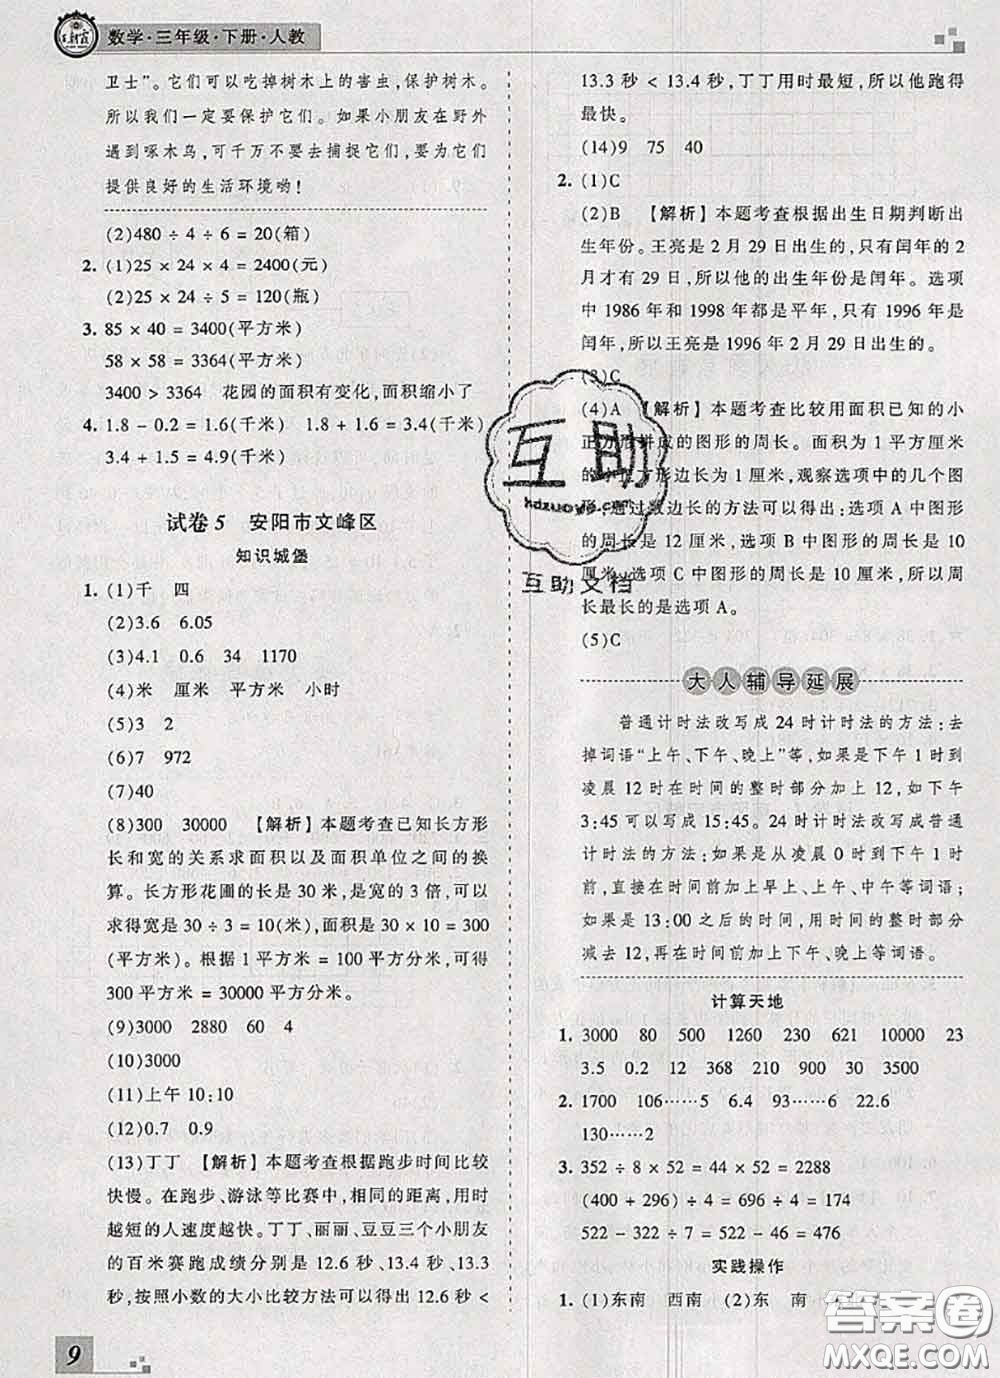 数学·三年级·下册·人教
卫士”。它们可以吃掉树木上的害虫,保护树木。
所以我们一定要保护它们。如果小朋友在野外
遇到啄木鸟,可千万不要去捕捉它们,要为它们
提供良好的生活环境哟!
(2)480÷4÷6=20(箱)
2. (1)25×24×4=2400(元)
(2)25×24÷5=120(瓶)
3. 85×40=3400(平方米)
58×58=3364(平方米)
3400>3364 花园的面积有变化,面积缩小了
4. 1.8-0.2=1.6(千米) 1.8+1.6=3.4(千米)
3.4+1.5=4.9(千米)
试卷5 安阳市文峰区
知识城堡
1. (1)千 四
(2)3.6 6.05
(3)4.1 0.6 34 1170
(4)米 厘米 平方米 小时
(5)3 2
(6)7 972
(7)40
(8)300 30000 【解析】本题考查已知长方形
长和宽的关系求面积以及面积单位之间的换
算。长方形花圃的长是30米,是宽的3倍,可以
求得宽是30÷3=10(米),面积是30×10=300
(平方米)。根据1平方米=100平方分米,可得
300平方米=30000平方分米。
(9)3000 2880 60 4
(10)3000
(11)上午10:10
(12)0.7 0.9
(13)丁丁 【解析】本题考查根据跑步时间比较
快慢。在跑步、游泳等比赛中,相同的路程,用时
越短的人速度越快。丁丁、丽丽、豆豆三个小朋友
的百米赛跑成绩分别是12.6秒、13.4秒、13.3
秒,按照小数的大小比较方法可以得出12.6秒<
9
13.3秒<13.4秒,丁丁用时最短,所以他跑得
最快。
(14)9 75 40
2. (1)C
(2)B 【解析】本题考查根据出生日期判断出
生年份。王亮是2月29日出生的,只有闰年的2
月才有29日,所以他的出生年份是闰年。选项
中1986年和1998年都是平年,只有1996年是
闰年,所以王亮是1996年2月29日出生的。
(3)C
(4)A 【解析】本题考查比较用面积已知的小
正方形拼成的图形的周长。面积为1平方厘米
的正方形边长为1厘米,观察选项中的几个图
形,通过数边长的方法可以得出:选项A中图形
的周长是12厘米,选项B中图形的周长是10
厘米,选项C中图形的周长是10厘米,所以周
长最长的是选项A。
(5)C
大人辅导延展
普通计时法改写成24时计时法的方法:去
掉词语“上午、下午、晚上”等,如果是下午1时到
凌晨12时在时间的整时部分加上12,如下午
3:45可以写成15:45。24时计时法改写成普通
计时法的方法:如果是从凌晨0时到下午1时
前,直接在时间前加上早上、上午、中午等词语;
如果是13:00之后的时间,用时间的整时部分
减去12,再在时间前加上下午、晚上等词语。
计算天地
1. 3000 80 500 1260 230 621 10000 23
3.5 0.2 12 368 210 900 30 3500
2. 1700 106……5 6.4 93……6 22.6
130……2
3. 352÷8×52=44×52=2288
(400+296)÷4=696÷4=174
522-322÷7=522-46=476
实践操作
1. (1)东南 西南 (2)东 南
互助
hdzuoye.com
互助文档
答案圈
MXQE.COM